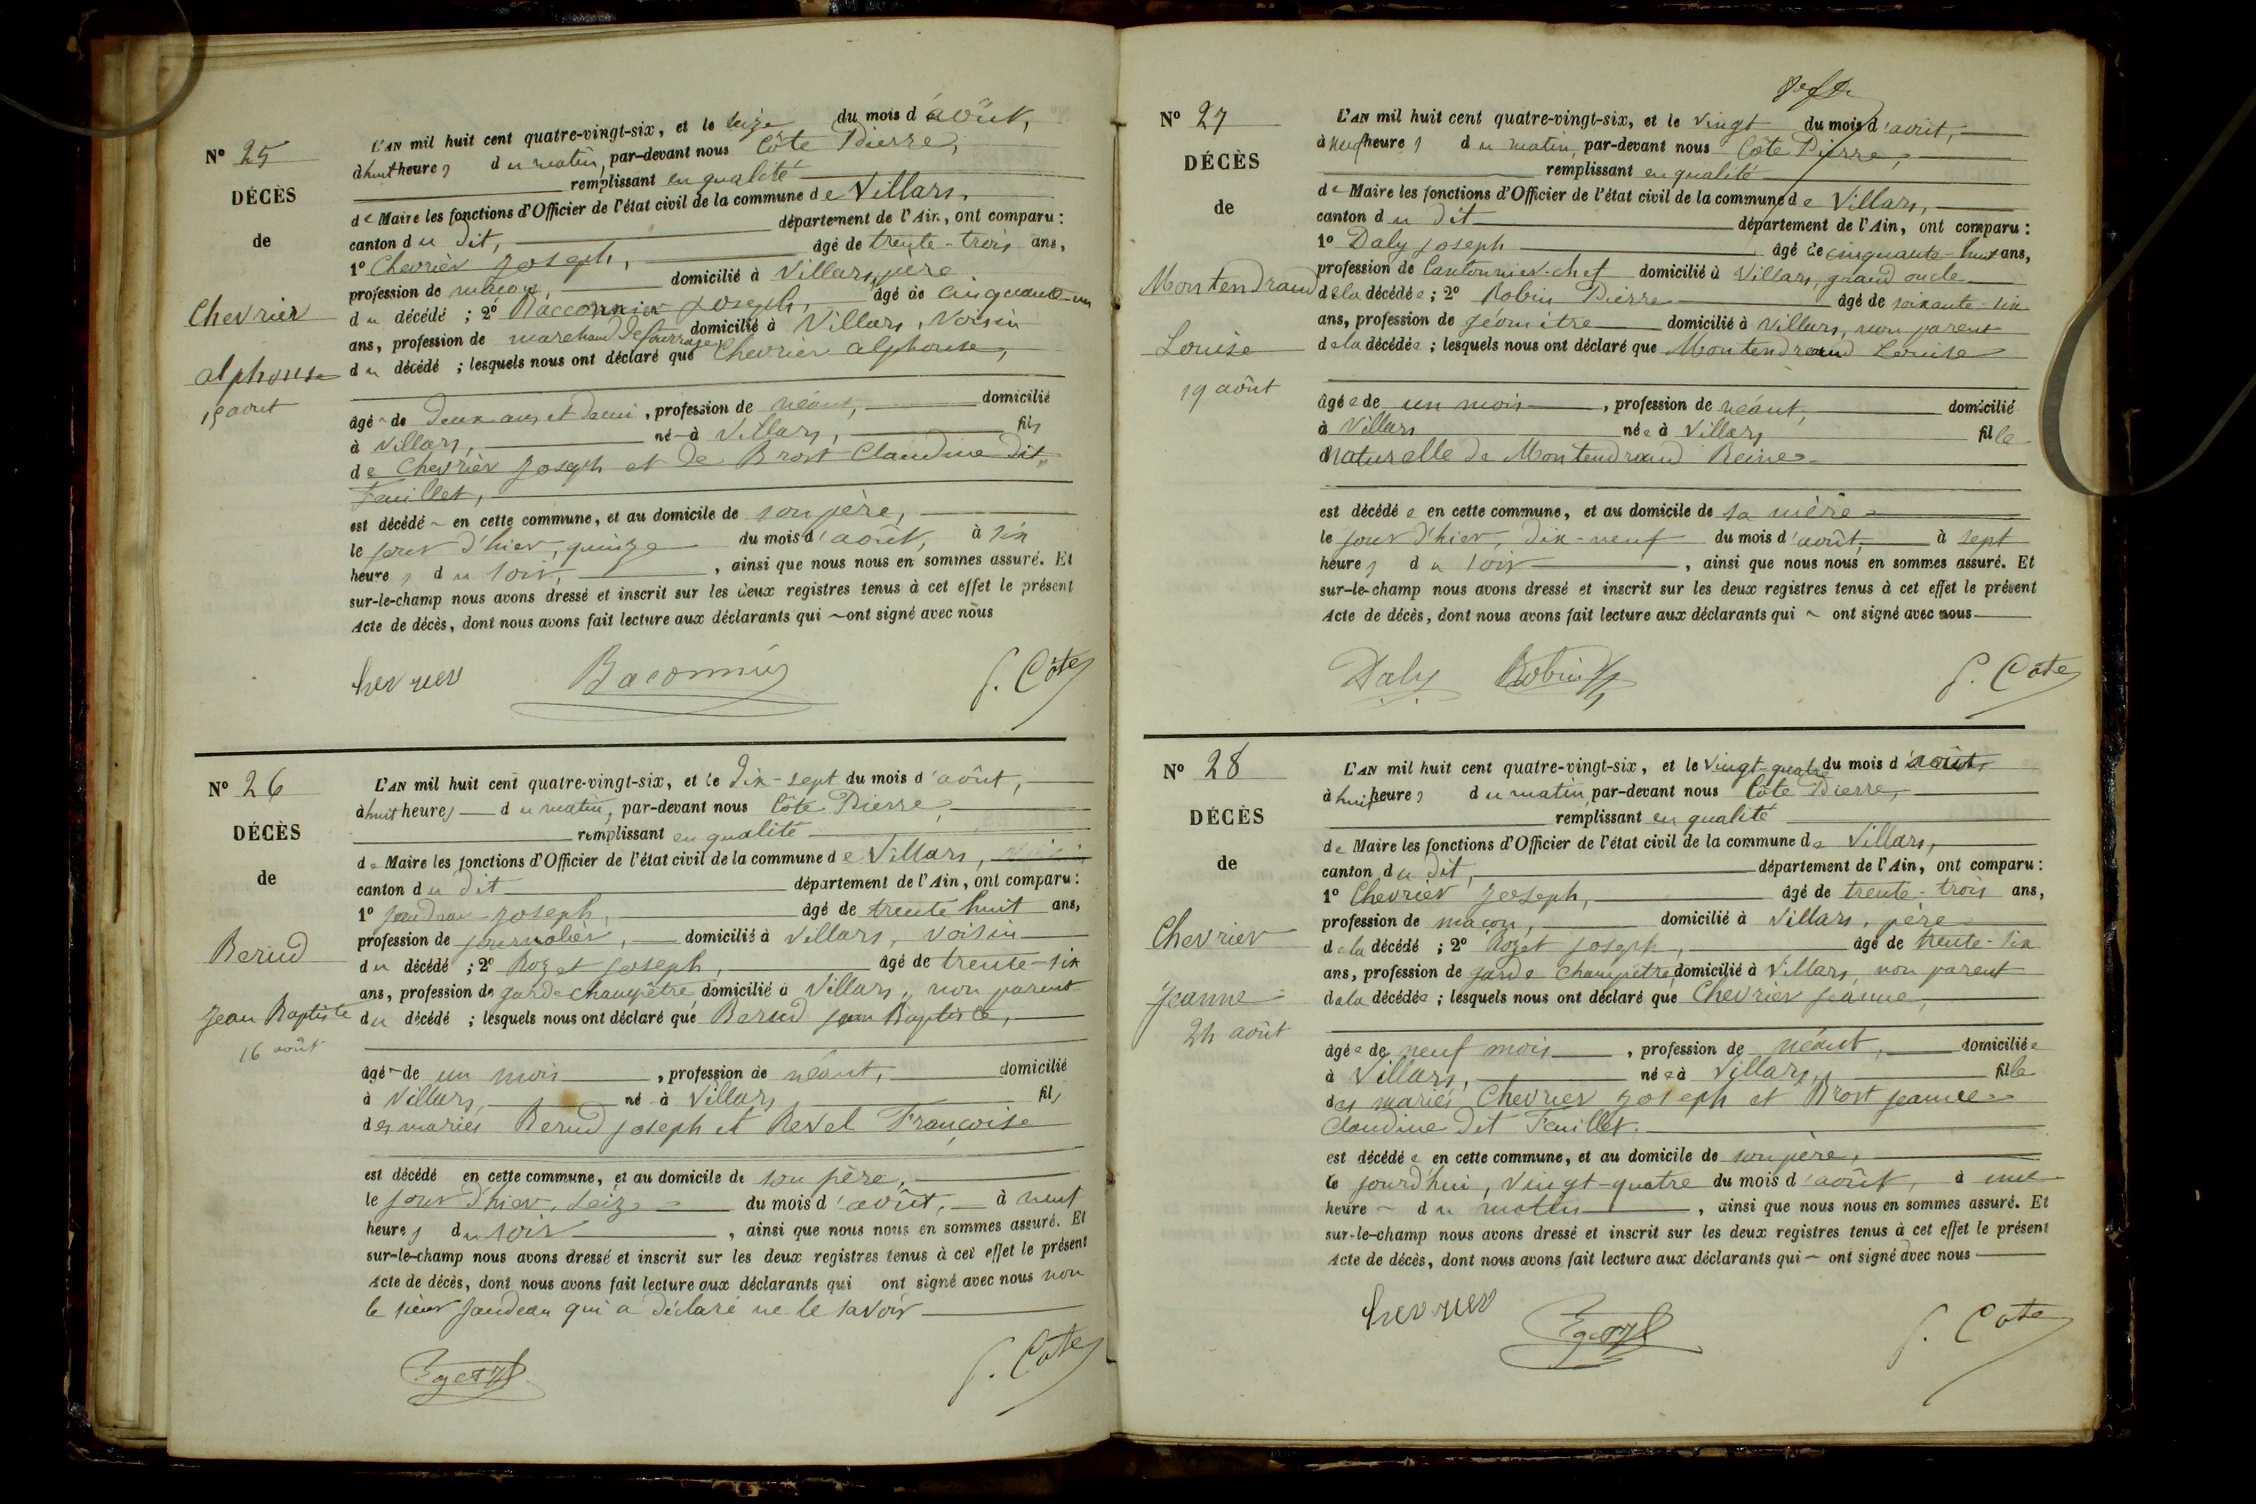 Nº 25
DÉCÈS
de
Chevrier
alphonse
15 aout
L'AN mil huit cent quatre-vingt-six, et le seize du mois d'août,
à huit heures du matin, par-devant nous Côte Pierre,
remplissant en qualité
de Maire les fonctions d'Officier de l'état civil de la commune de Villars,
canton du dit, département de l'Ain, ont comparu :
1º Chevrier Joseph, âgé de trente-trois ans,
profession de maçon, domicilié à Villars, père
du décédé ; 2º Racconnier Joseph, âgé de cinquante-un
ans, profession de marchand de fourrages domicilié à Villars, voisin
du décédé ; lesquels nous ont déclaré que Chevrier alphonse,
âgé de deux ans et demi, profession de néant, domicilié
à Villars, né à Villars, fils
de Chevrier Joseph et de Brost Claudine dit
Feuillet,
est décédé en cette commune, et au domicile de son père,
le jour d'hier, quinze du mois d'août, à six
heures du soir, , ainsi que nous nous en sommes assuré. Et
sur-le-champ nous avons dressé et inscrit sur les deux registres tenus à cet effet le présent
Acte de décès, dont nous avons fait lecture aux déclarants qui ont signé avec nous
Chevrier Baconnier P. Côte
Nº 26
DÉCÈS
de
Berud
Jean Baptiste
16 août
L'AN mil huit cent quatre-vingt-six, et le dix-sept du mois d'août,
à huit heures du matin, par-devant nous Côte Pierre,
remplissant en qualité
de Maire les fonctions d'Officier de l'état civil de la commune de Villars,
canton du dit département de l'Ain, ont comparu :
1º Jandeau Joseph, âgé de trente huit ans,
profession de journalier, domicilié à Villars, voisin
du décédé ; 2º Rozet Joseph, âgé de trente-six
ans, profession de garde champêtre domicilié à Villars, non parent
du décédé ; lesquels nous ont déclaré que Berud Jean Baptiste,
âgé de un mois , profession de néant, domicilié
à Villars, né à Villars fils
des mariés Berud Joseph et Revel Françoise
est décédé en cette commune, et au domicile de son père,
le jour d'hier, seize du mois d'août, à neuf
heures du soir , ainsi que nous nous en sommes assuré. Et
sur-le-champ nous avons dressé et inscrit sur les deux registres tenus à cet effet le présent
Acte de décès, dont nous avons fait lecture aux déclarants qui ont signé avec nous non
le sieur Jandeau qui a déclaré ne le savoir
P. Côte
Nº 27
DÉCÈS
de
Montendraud
Louise
19 août
L'AN mil huit cent quatre-vingt-six, et le vingt du mois d'août,
à neuf heures du matin, par-devant nous Côte Pierre,
remplissant en qualité
de Maire les fonctions d'Officier de l'état civil de la commune de Villars,
canton du dit département de l'Ain, ont comparu :
1º Daly Joseph âgé de cinquante-huit ans,
profession de Cantonnier-chef domicilié à Villars, grand oncle
de la décédée ; 2º Robin Pierre âgé de soixante-six
ans, profession de géomètre domicilié à Villars, non parent
de la décédée ; lesquels nous ont déclaré que Montendraud Louise
âgée de un mois , profession de néant, domicilié
à Villars née à Villars fille
naturelle de Montendraud Reine
est décédée en cette commune, et au domicile de sa mère
le jour d'hier, dix-neuf du mois d'août, à sept
heures du soir , ainsi que nous nous en sommes assuré. Et
sur-le-champ nous avons dressé et inscrit sur les deux registres tenus à cet effet le présent
Acte de décès, dont nous avons fait lecture aux déclarants qui ont signé avec nous
Daly Robin P. Côte
Nº 28
DÉCÈS
de
Chevrier
Jeanne
24 août
L'AN mil huit cent quatre-vingt-six, et le vingt-quatre du mois d'août,
à huit heures du matin, par-devant nous Côte Pierre,
remplissant en qualité
de Maire les fonctions d'Officier de l'état civil de la commune de Villars,
canton du dit, département de l'Ain, ont comparu :
1º Chevrier Joseph, âgé de trente-trois ans,
profession de maçon, domicilié à Villars, père
de la décédé ; 2º Rozet Joseph, âgé de trente-six
ans, profession de garde champêtre domicilié à Villars, non parent
de la décédée ; lesquels nous ont déclaré que Chevrier Jeanne,
âgée de neuf mois , profession de néant, domiciliée
à Villars, née à Villars, fille
des mariés Chevrier Joseph et Brost Jeanne
Claudine dit Feuillet.
est décédée en cette commune, et au domicile de son père,
le jourd'hui, vingt-quatre du mois d'août, à une
heure du matin , ainsi que nous nous en sommes assuré. Et
sur-le-champ nous avons dressé et inscrit sur les deux registres tenus à cet effet le présent
Acte de décès, dont nous avons fait lecture aux déclarants qui ont signé avec nous
Chevrier P. Côte